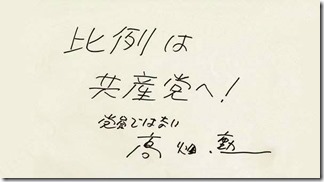 比例は
共産党へ!
党員ではない
高畑.勲